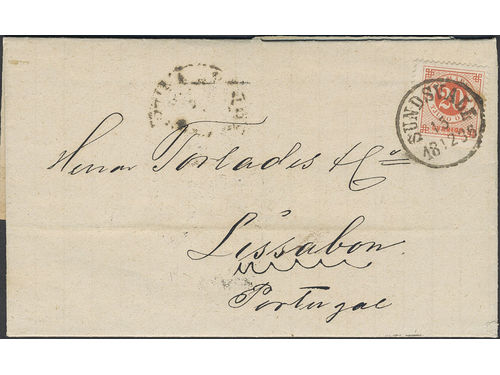 SUNDSVALL
20
Herrar Torlades & Co
Lissabon.
Portugal